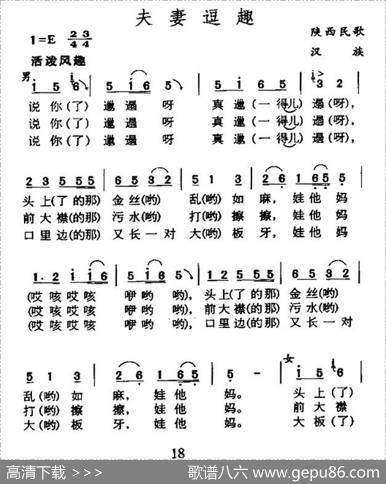 夫妻逗趣
1=E 2/4 3/4
陕西民歌
汉族
活泼风趣
男
i 5 6 5 i 6 5 i i 6 5 3 2
说你(了)邋遢呀 真邋(一得儿)遢(呀),
说你(了)邋遢呀 真邋(一得儿)遢(呀),
说你(了)邋遢呀 真邋(一得儿)遢(呀),
2 3 5 5 5 6 5 3 2 5 1 3 2 1 6 5
头上(了的那)金丝(哟) 乱(哟)如麻,娃他妈
前大襟(的那)污水(哟) 打(哟)擦擦,娃他妈
口里边(的那)又长一对 大(哟)板牙,娃他妈
1·2 i i 6 5 i 6 5 1 2 5 5 5 6 5 3 2
(哎咳哎咳 咿哟哟),头上(了的那)金丝(哟)
(哎咳哎咳 咿哟哟),前大襟(的那)污水(哟)
(哎咳哎咳 咿哟哟),口里边(的那)又长一对
女
5 1 3 2 1 6 5 5 -
乱(哟)如麻,娃他妈。 头上(了)
打(哟)擦擦,娃他妈。 前大襟
大(哟)板牙,娃他妈。 大板(了)
18
高清下载 >>> 歌谱八六 www.gepu86.com